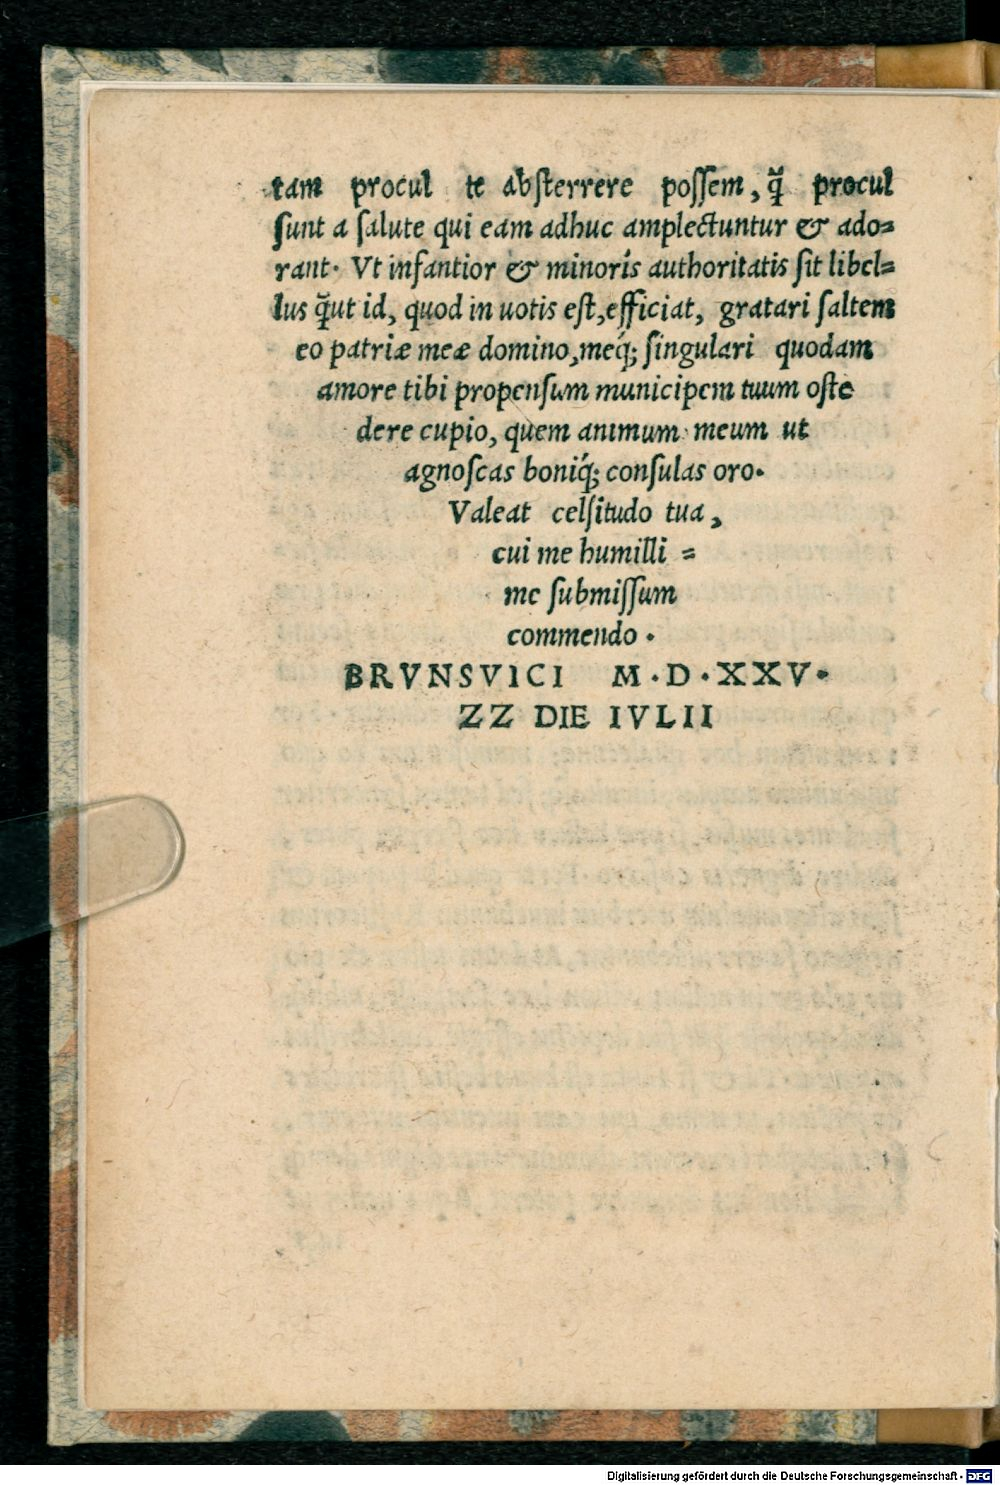 tam procul te absterrere possem, q̃ procul
sunt a salute qui eam adhuc amplectuntur & ado=
rant. Vt infantior & minoris authoritatis sit libel=
lus q̃ut id, quod in uotis est, efficiat, gratari saltem
eo patriæ meæ domino, meq́; singulari quodam
amore tibi propensum municipem tuum oste
dere cupio, quem animum meum ut
agnoscas boniq́; consulas oro.
Valeat celsitudo tua,
cui me humilli =
me submissum
commendo.
BRVNSVICI M.D.XXV.
ZZ DIE IVLII
Digitalisierung gefördert durch die Deutsche Forschungsgemeinschaft - DFG